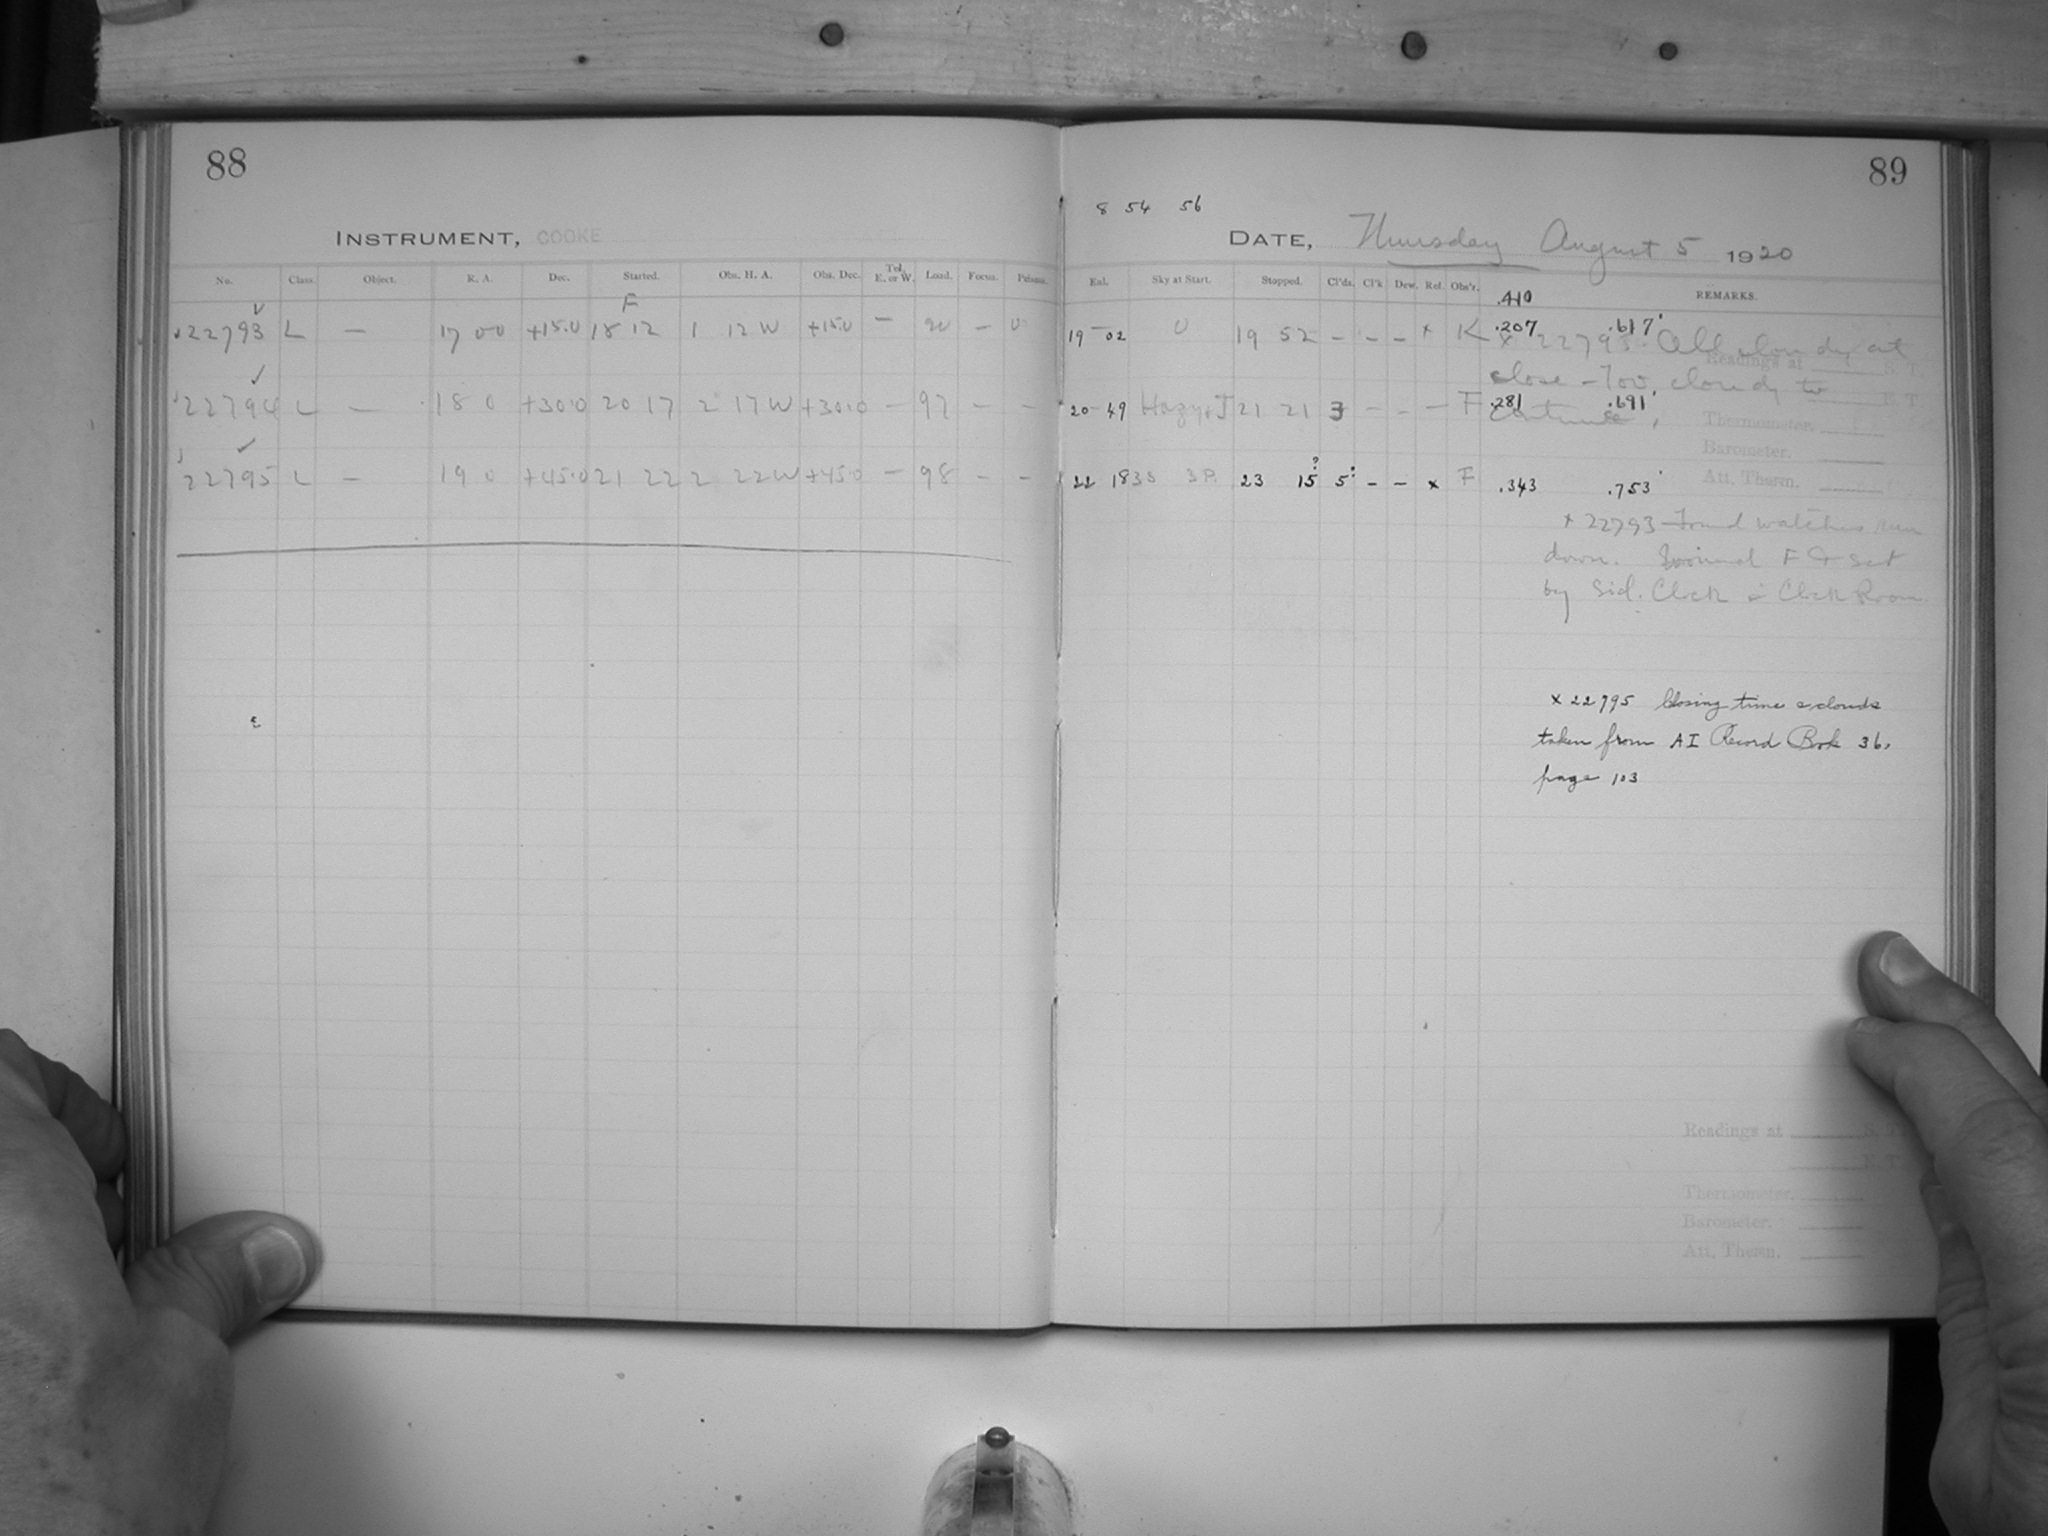 88
89
8 54 56
INSTRUMENT, COOKE
DATE, Thursday August 5 1920
No. Class. Object. R. A. Dec. Started. Obs. H. A. Obs. Dec. Tel. E. or W. Load. Focus. Prisms.
Exl. Sky at Start. Stopped. Cl'ds. Cl'k Dew. Rel. Obs'r. REMARKS.
F
.410
22793 L — 17 00 +15.0 18 12 1 12 W +15.0 — — 0
19-02 0 19 52 - - - x K .207 .617
x 22793. All cloudy at
close - Too cloudy to
continue.
22794 L — 18 0 +30.0 20 17 2 17 W +30.0 — 97 - -
20-49 Hazy 21 21 3 - - - F .281 .691
22795 L — 19 0 +45.0 21 22 2 22 W +45.0 — 98 - -
22 18 3P. 23 15? 5: - - x F .343 .753
x 22793 - Found watches run
down. Wound F & set
by Sid. Clock in Clock Room.
x 22795 Closing time & clouds
taken from AI Record Book 36,
page 103
Readings at S. T.
E. T.
Thermometer.
Barometer.
Att. Therm.
Readings at S. T.
E. T.
Thermometer.
Barometer.
Att. Therm.